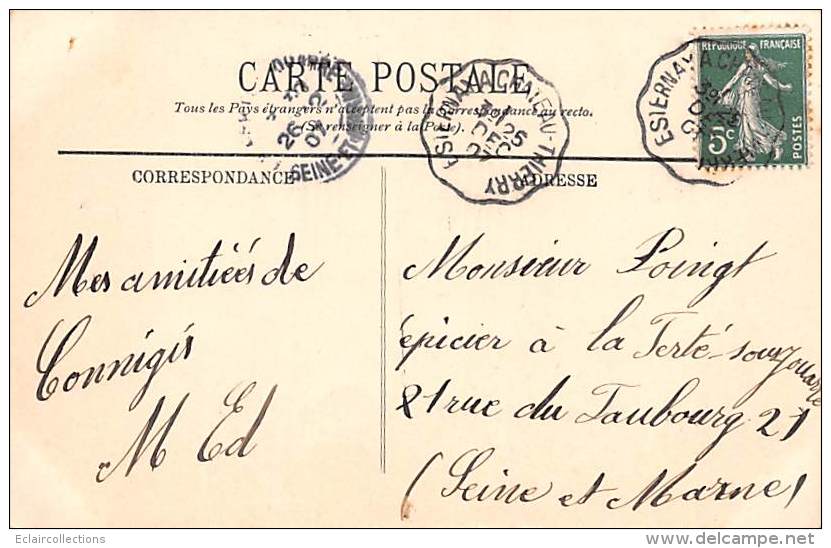 CARTE POSTALE
Tous les Pays étrangers n'acceptent pas la correspondance au recto.
(Se renseigner à la Poste).
CORRESPONDANCE
ADRESSE
RÉPUBLIQUE FRANÇAISE
5c
POSTES
ESTERNAY A CHATEAU-THIERRY
25
DEC
07
ESTERNAY A CH
SEINE-ET
26
Mes amitiéés de
Connigis
M Ed
Monsieur Poingt
épicier à la Ferté-sous-Jouarre
21 rue du Faubourg 21
(Seine et Marne)
Eclaircollections